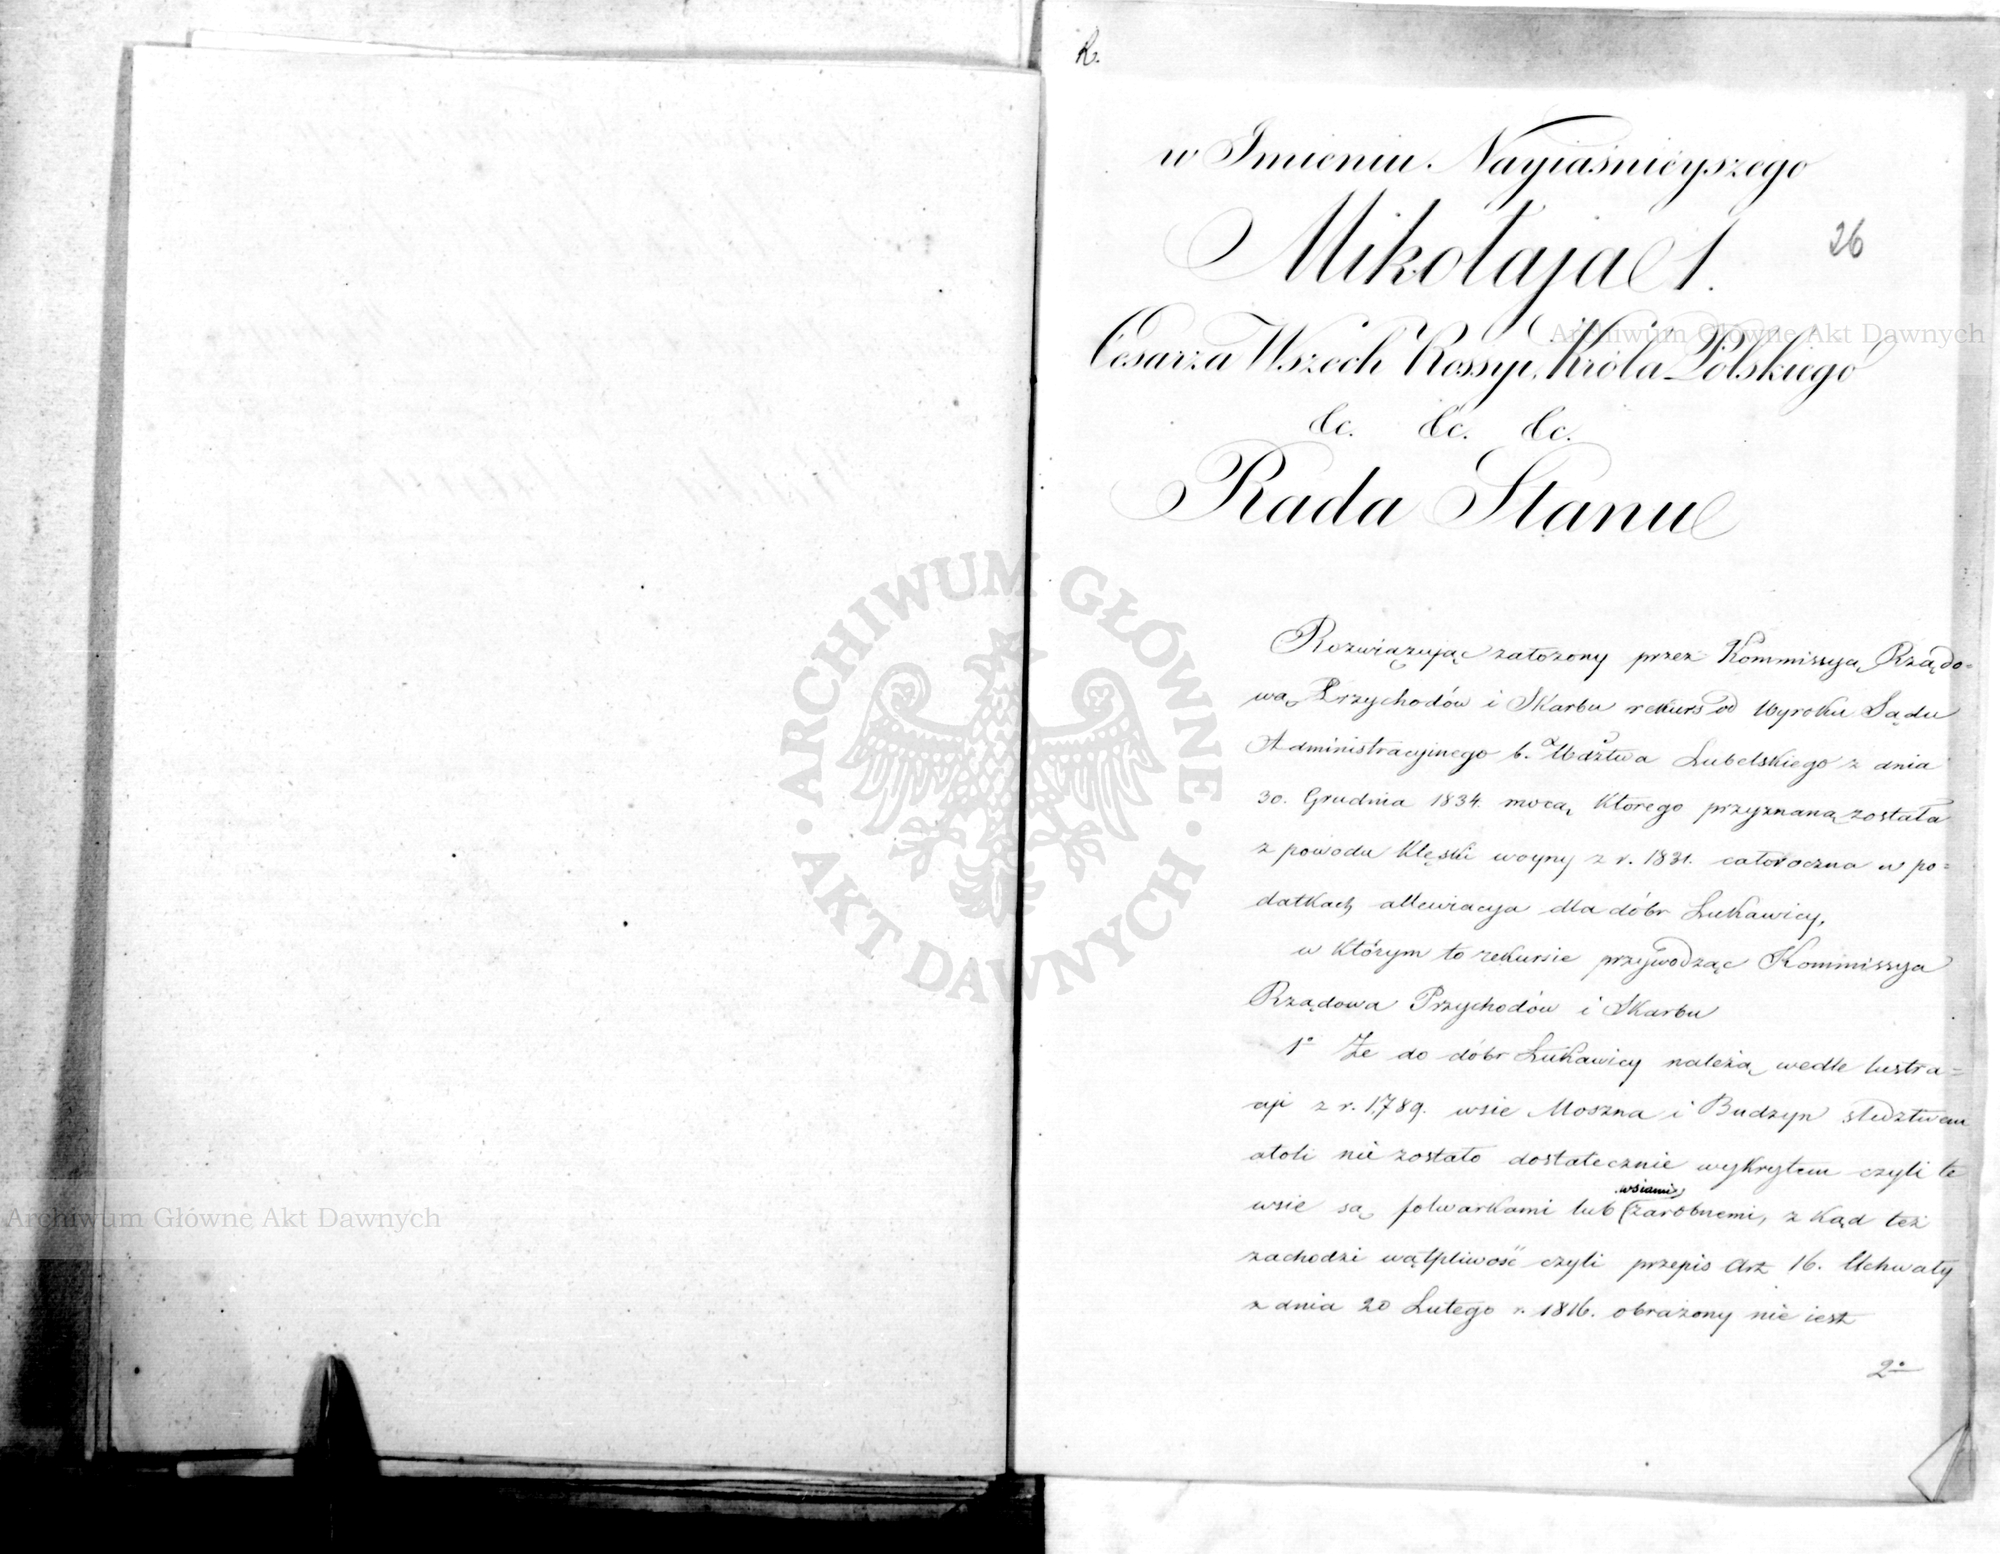 R.
w Imieniu Nayiaśnieyszego
Mikołaja 1.
26
Cesarza Wszech Rossyi, Króla Polskiego
&c. &c. &c.
Rada Stanu
Rozwiązując założony przez Kommissyą Rządo=
wą Przychodów i Skarbu rekurs od Wyroku Sądu
Administracyinego b. Wdztwa Lubelskiego z dnia
30. Grudnia 1834. mocą którego przyznaną została
z powodu klęski woyny z r. 1831. całoroczna w po=
datkach allewiacya dla dóbr Łukawicy,
w którym to rekursie przywodząc Kommissya
Rządowa Przychodów i Skarbu
1° Że do dóbr Łukawicy należą wedle lustra=
cyi z r. 1789. wsie Moszna i Budzyn śledztwem
atoli nie zostało dostatecznie wykrytem czyli te
wsie są folwarkami lub wsiami zarobnemi, z kąd też
zachodzi wątpliwość czyli przepis Art 16. Uchwały
z dnia 20 Lutego r. 1816. obrażony nie iest
2°
Archiwum Główne Akt Dawnych
Archiwum Główne Akt Dawnych
ARCHIWUM GŁÓWNE
AKT DAWNYCH